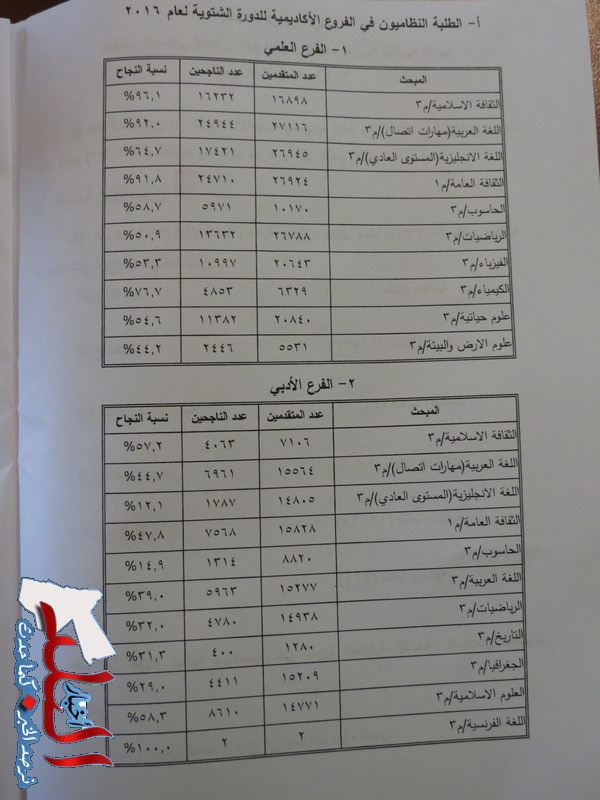 أ- الطلبة النظاميون في الفروع الأكاديمية للدورة الشتوية لعام ٢٠١٦
١- الفرع العلمي
المبحث عدد المتقدمين عدد الناجحين نسبة النجاح
الثقافة الاسلامية/م٣ ١٦٨٩٨ ١٦٢٣٢ %٩٦,١
اللغة العربية(مهارات اتصال)/م٣ ٢٧١١٦ ٢٤٩٤٤ %٩٢,٠
اللغة الانجليزية(المستوى العادي)/م٣ ٢٦٩٤٥ ١٧٤٢١ %٦٤,٧
الثقافة العامة/م١ ٢٦٩٢٤ ٢٤٧١٠ %٩١,٨
الحاسوب/م٣ ١٠١٧٠ ٥٩٧١ %٥٨,٧
الرياضيات/م٣ ٢٦٧٨٨ ١٣٦٣٢ %٥٠,٩
الفيزياء/م٣ ٢٠٦٤٣ ١٠٩٩٧ %٥٣,٣
الكيمياء/م٣ ٦٣٢٩ ٤٨٥٣ %٧٦,٧
علوم حياتية/م٣ ٢٠٨٤٠ ١١٣٨٢ %٥٤,٦
علوم الارض والبيئة/م٣ ٥٥٣١ ٢٤٤٦ %٤٤,٢
٢- الفرع الأدبي
المبحث عدد المتقدمين عدد الناجحين نسبة النجاح
الثقافة الاسلامية/م٣ ٧١٠٦ ٤٠٦٣ %٥٧,٢
اللغة العربية(مهارات اتصال)/م٣ ١٥٥٦٤ ٦٩٦١ %٤٤,٧
اللغة الانجليزية(المستوى العادي)/م٣ ١٤٨٠٥ ١٧٨٧ %١٢,١
الثقافة العامة/م١ ١٥٨٢٨ ٧٥٦٨ %٤٧,٨
الحاسوب/م٣ ٨٨٢٠ ١٣١٤ %١٤,٩
اللغة العربية/م٣ ١٥٢٧٧ ٥٩٦٣ %٣٩,٠
الرياضيات/م٣ ١٤٩٣٨ ٤٧٨٠ %٣٢,٠
التاريخ/م٣ ١٢٨٠ ٤٠٠ %٣١,٣
الجغرافيا/م٣ ١٥٢٠٩ ٤٤١١ %٢٩,٠
العلوم الاسلامية/م٣ ١٤٧٧١ ٨٦١٠ %٥٨,٣
اللغة الفرنسية/م٣ ٢ ٢ %١٠٠,٠
أخبار
البلد
نرصد الخبر كما حدث